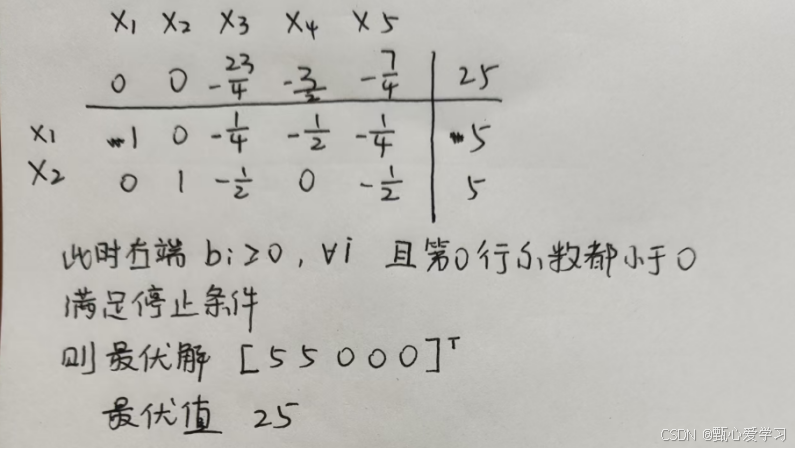 x₁ x₂ x₃ x₄ x5
0 0 -23/4 -3/2 -7/4 | 25
x₁ 1 0 -1/4 -1/2 -1/4 | 5
x₂ 0 1 -1/2 0 -1/2 | 5
此时右端 bi≥0, ∀i 且第0行系数都小于0
满足停止条件
则最优解 [5 5 0 0 0]ᵀ
最优值 25
CSDN @甄心爱学习